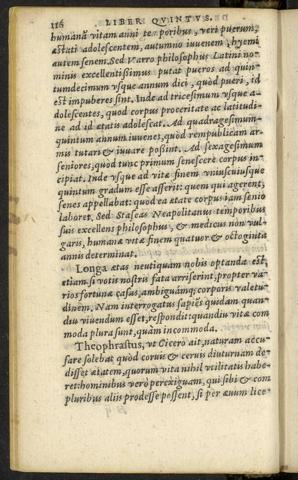 116 LIBER QVINTVS.
humanæ vitam anni temporibus, veri puerum,
æstati adolescentem, autumno iuuenem, hyemi
autem senem. Sed Varro philosophus Latini no-
minis excellentißimus putat pueros ad quin-
tumdecimum vsque annum dici, quòd pueri, id
est impuberes sint. Inde ad tricesimum vsque a-
dolescentes, quòd corpus proceritate ac latitudi-
ne ad id ætatis adolescat. Ad quadragesimum-
quintum annum iuuenes, quòd rempublicam ar-
mis tutari & iuuare poßint. Ad sexagesimum
seniores, quòd tunc primum senescere corpus in-
cipiat. Inde vsque ad vitæ finem vniuscuiusque
quintum gradum esse asserit: quem qui agerent,
senes appellabat: quòd ea ætate corpus iam senio
laboret. Sed Staseas Neapolitanus temporibus
suis excellens philosophus, & medicus non vul-
garis, humanæ vitæ finem quatuor & octoginta
annis determinat.
Longa ætas neutiquam nobis optanda est,
etiam si votis nostris fata arriserint, propter va-
rios fortunæ casus, ambiguámq; corporis valetu-
dinem. Nam interrogatus sapiens quidam quan-
diu viuendum esset, respondit: quandiu vitæ com
moda plura sunt, quàm incommoda.
Theophrastus, vt Cicero ait, naturam accu-
sare solebat quòd coruis & ceruis diuturnam de-
disset ætatem, quorum vita nihil vtilitatis habe-
ret: hominibus verò perexiguam, qui sibi & com
pluribus aliis prodesse possent, si per æuum lice-